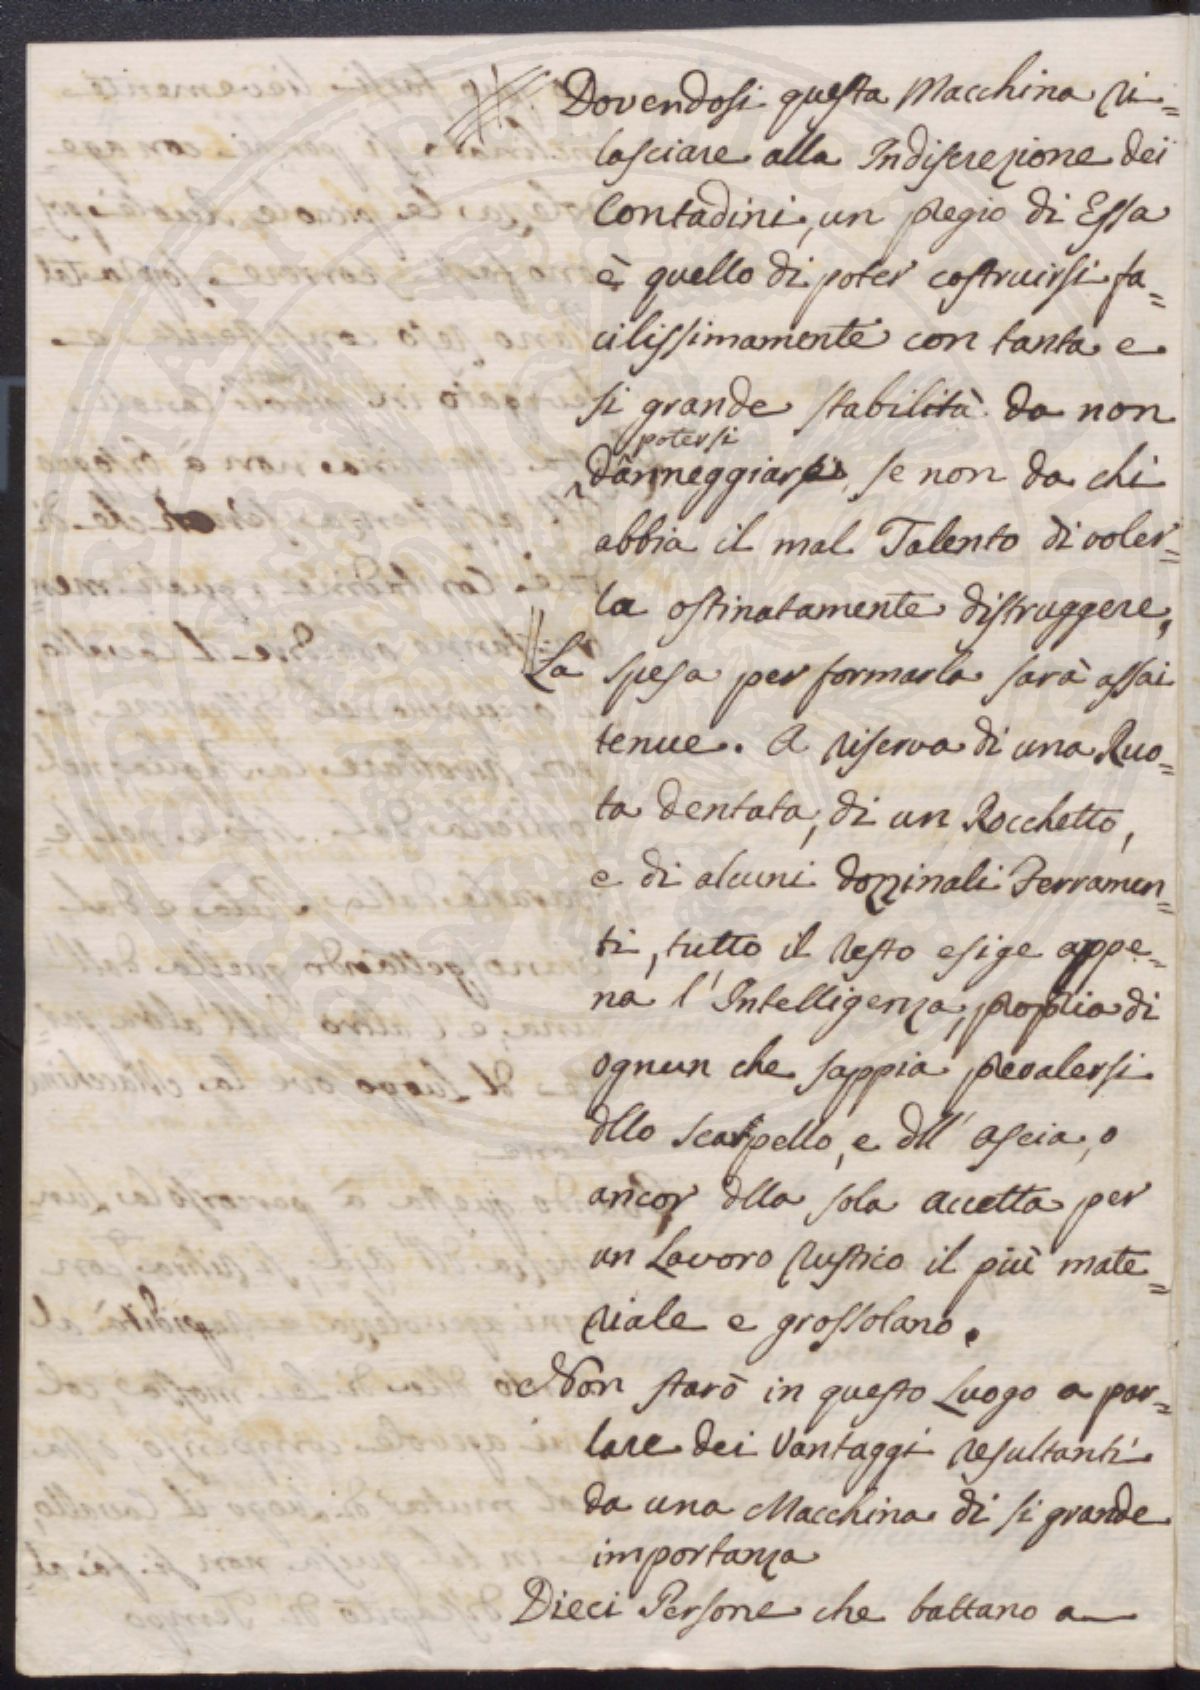 Dovendosi questa Macchina ri=
lasciare alla Indiscrezione dei
Contadini, un pregio di Essa
è quello di poter costruirsi fa=
cilissimamente con tanta e
si grande stabilità da non
potersi
danneggiarsi, se non da chi
abbia il mal Talento di voler=
la ostinatamente distruggere,
La spesa per formarla sarà assai
tenue. A riserva di una Ruo=
ta dentata, di un Rocchetto,
e di alcuni dozzinali Ferramen=
ti, tutto il resto esige appe=
na l'Intelligenza, propria di
ognun che sappia prevalersi
dllo scarpello, e dll'ascia, o
ancor dlla sola accetta per
un Lavoro rustico il più mate=
riale e grossolano.
Non starò in questo Luogo a par=
lare dei Vantaggi resultanti
da una Macchina di si grande
importanza
Dieci Persone che battano a